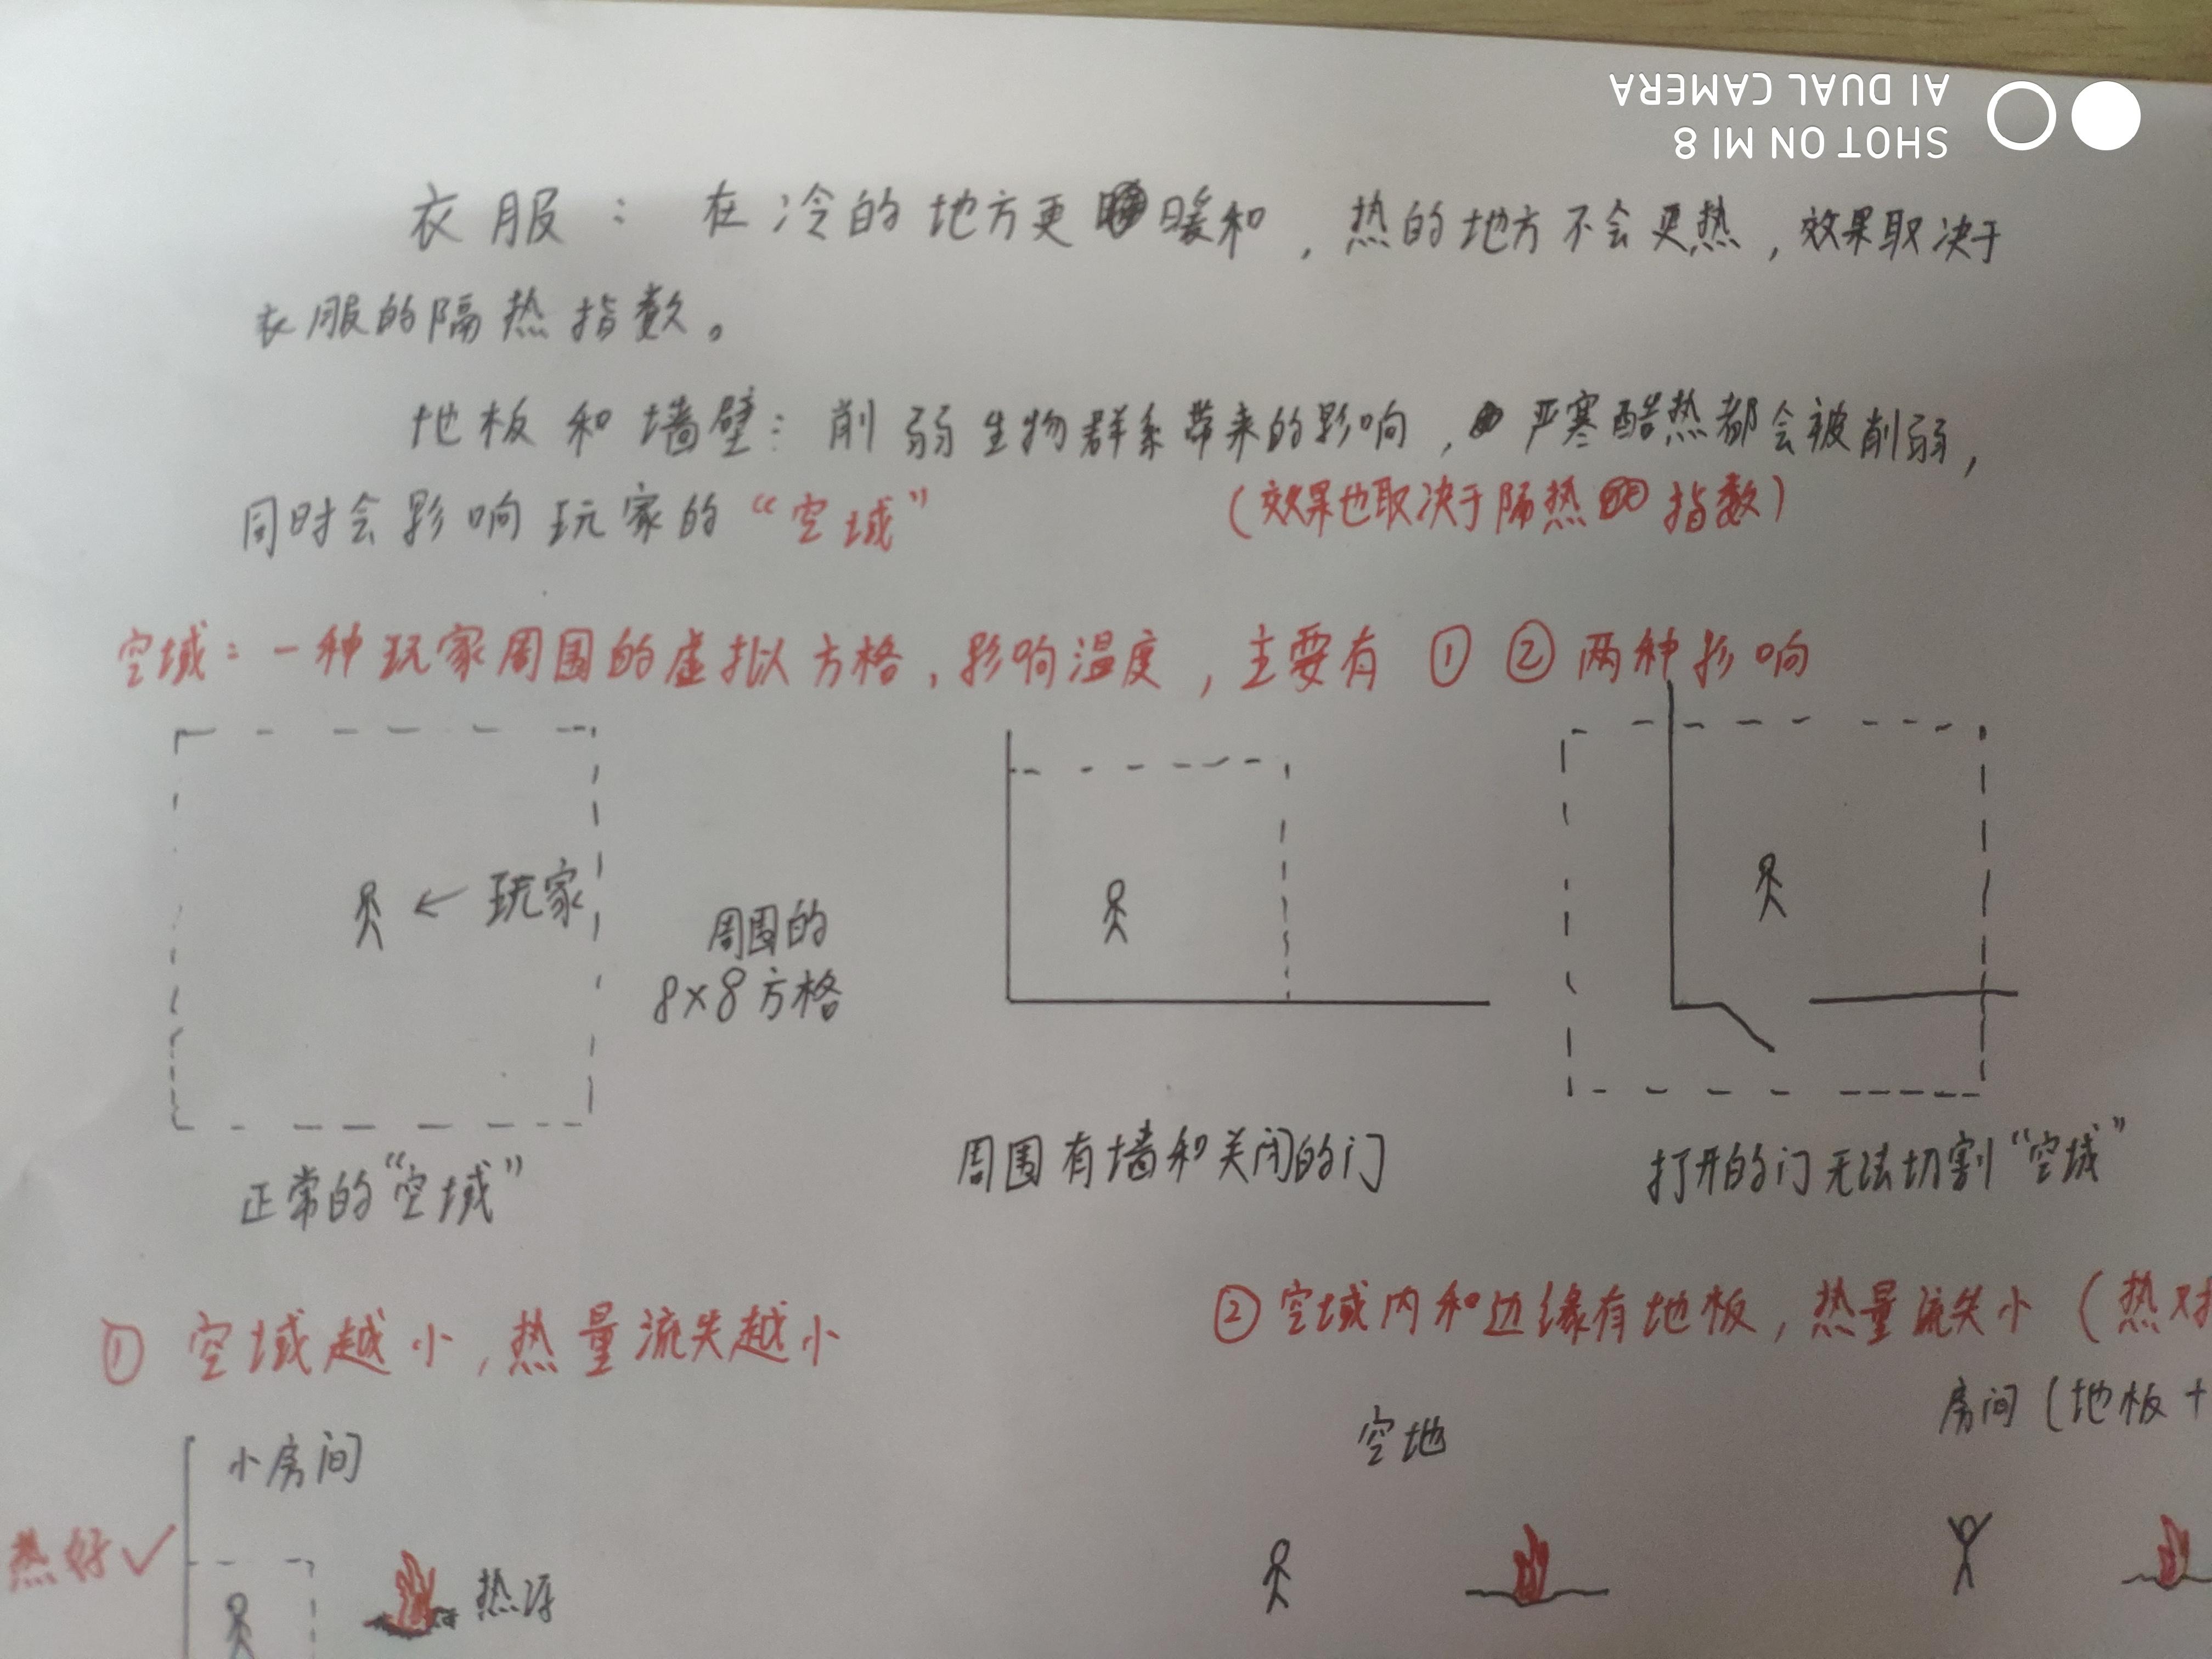 SHOT ON MI 8
AI DUAL CAMERA
衣服：在冷的地方更暖和，热的地方不会更热，效果取决于
衣服的隔热指数。
地板和墙壁：削弱生物群系带来的影响，严寒酷热都会被削弱，
同时会影响玩家的“空域”
（效果也取决于隔热指数）
空域：一种玩家周围的虚拟方格，影响温度，主要有①②两种影响
←玩家
周围的
8×8方格
正常的“空域”
周围有墙和关闭的门
打开的门无法切割“空域”
①空域越小，热量流失越小
②空域内和边缘有地板，热量流失小（热
小房间
空地
房间（地板+
热好✓
热源